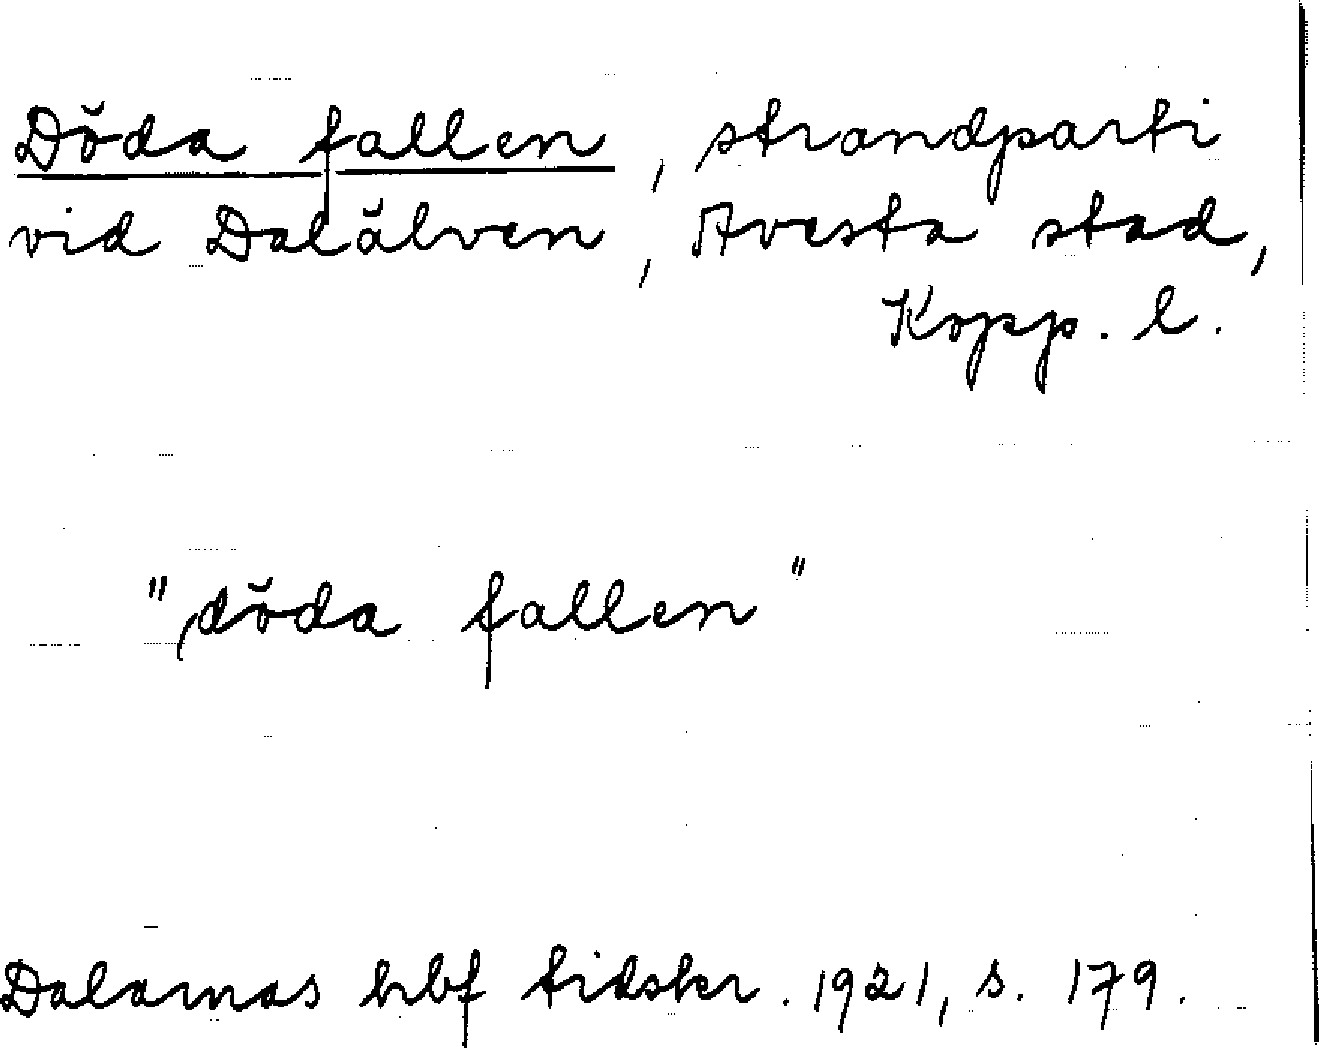 Döda fallen, strandparti
vid Dalälven, Avesta stad,
Kopp. l.
"döda fallen"
Dalarnas hbf tidskr. 1921, s. 179.